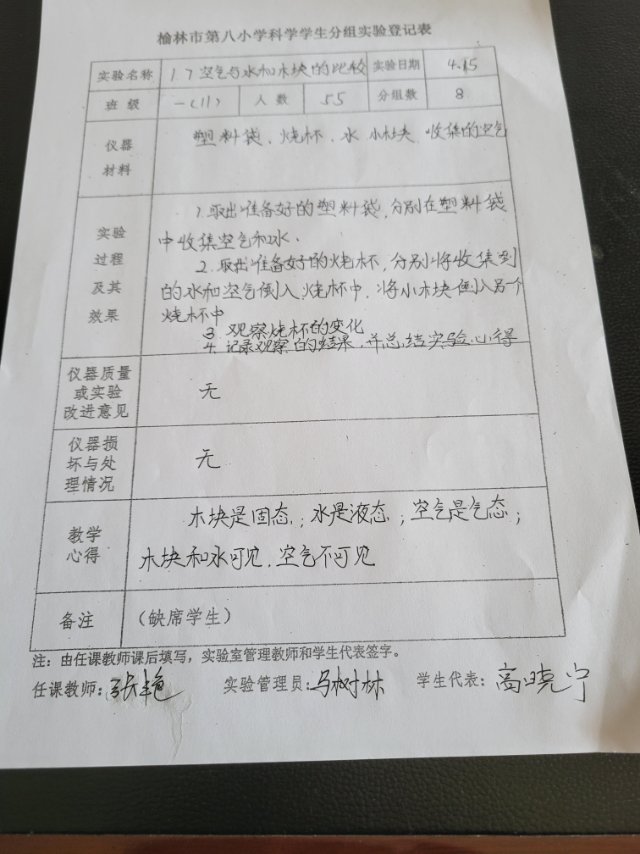 榆林市第八小学科学学生分组实验登记表
实验名称 1.7空气与水和木块的比较 实验日期 4.15
班 级 一(11) 人 数 55 分组数 8
仪器
材料
塑料袋、烧杯、水 小木块 收集的空气
实验
过程
及其
效果
1.取出准备好的塑料袋,分别在塑料袋
中收集空气和水.
2.取出准备好的烧杯,分别将收集到
的水和空气倒入烧杯中.将小木块倒入另个
烧杯中
3 观察烧杯的变化
4.记录观察的结果,并总结实验心得
仪器质量
或实验
改进意见
无
仪器损
坏与处
理情况
无
教学
心得
木块是固态;水是液态;空气是气态;
木块和水可见,空气不可见
备注 (缺席学生)
注:由任课教师课后填写,实验室管理教师和学生代表签字。
任课教师:张艳 实验管理员:马树林 学生代表:高晓宁